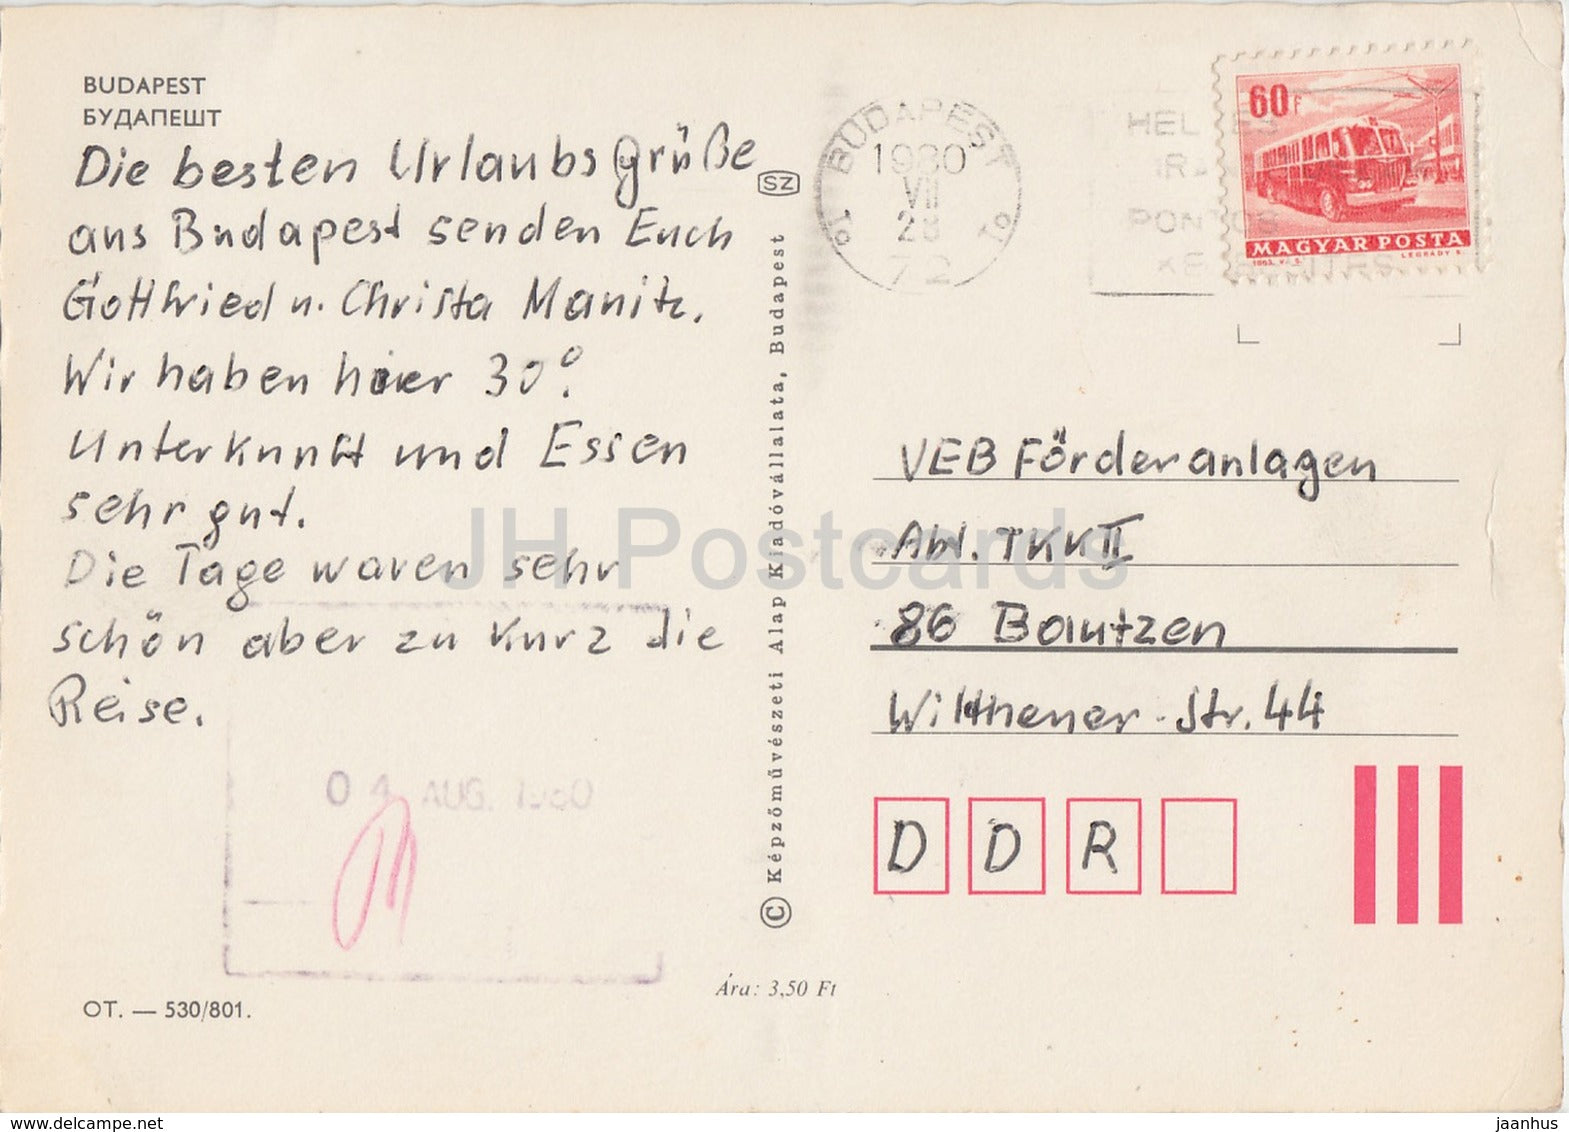 BUDAPEST
БУДАПЕШТ
Die besten Urlaubsgrüße
aus Budapest senden Euch
Gottfried u. Christa Manitz.
Wir haben hier 30°.
Unterkunft und Essen
sehr gut.
Die Tage waren sehr
schön aber zu kurz die
Reise.
04 AUG. 1980
OT. — 530/801.
SZ
© Képzőművészeti Alap Kiadóvállalata, Budapest
Ára: 3,50 Ft
BUDAPEST
1980
VII
72
60f
MAGYAR POSTA
1963. V. 6. LEGRÁDY S.
VEB Förderanlagen
Abt. TKK II
86 Bautzen
Wilthener-Str. 44
D D R
JH Postcards
www.delcampe.net
jaanhus